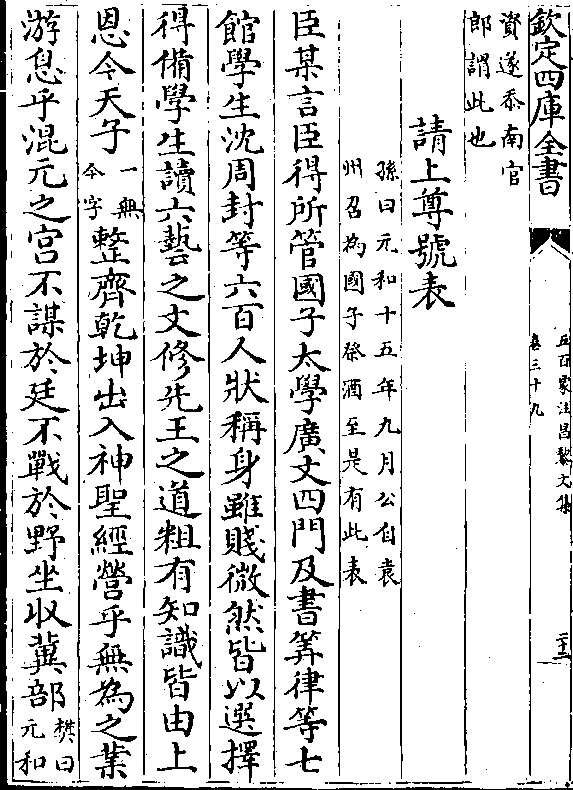 欽定四庫全書
五百家注昌黎文集
卷三十九
二十二
資遂忝南宫
郎謂此也
請上尊號表
孫曰元和十五年九月公自袁
州召為國子祭酒至是有此表
臣某言臣得所管國子太學廣文四門及書算律等七
館學生沈周封等六百人狀稱身雖賤微然皆以選擇
得備學生讀六藝之文修先王之道粗有知識皆由上
恩今天子一無今字整齊乾坤出入神聖經營乎無為之業
游息乎混元之宫不謀於廷不戰於野坐收冀部樊曰元和